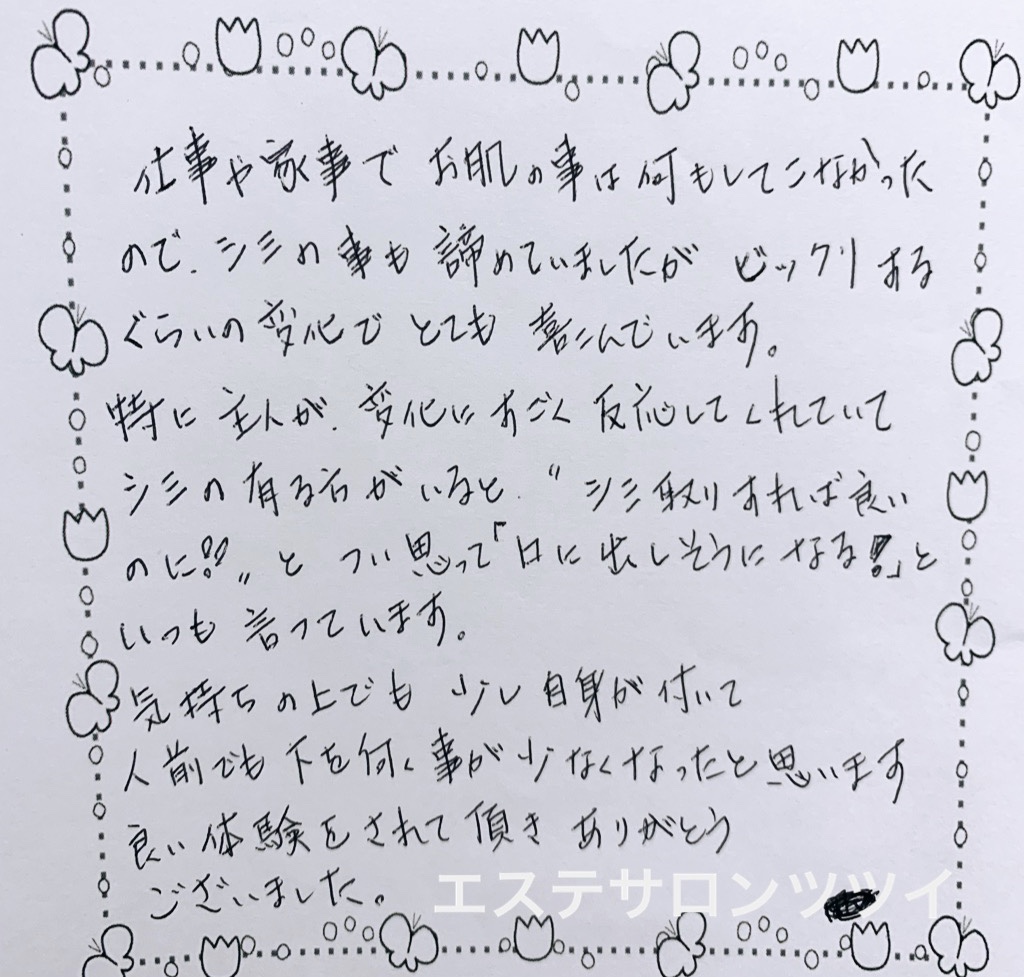 仕事や家事で お肌の事は何もしてこなかった
ので、シミの事も 諦めていましたが ビックリする
ぐらいの 変化で とても 喜こんでいます。
特に 主人が、変化にすごく 反応してくれていて
シミの有る方がいると、〝シミ取りすれば良い
のに!!〟と つい思って「口に出しそうになる!」と
いつも言っています。
気持ちの上でも 少し 自身が付いて
人前でも 下を何く事が少なくなったと思います
良い体験をされて頂き ありがとう
ございました。
エステサロンツツイ